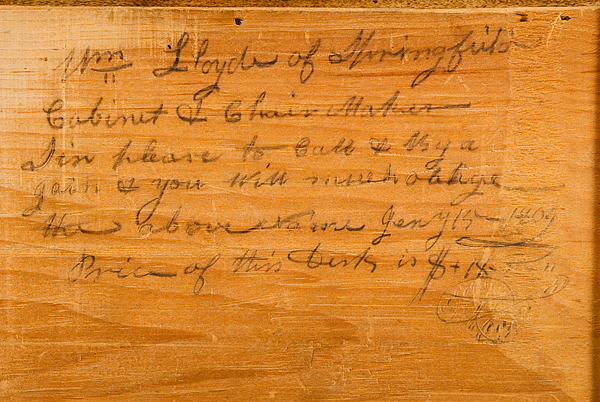 Wm Lloyde of Springfield
Cabinet & Chair Maker
Sir please to Call & try a
gain & you will much oblige
the above name Jany 15 1809
Price of this Desk is $